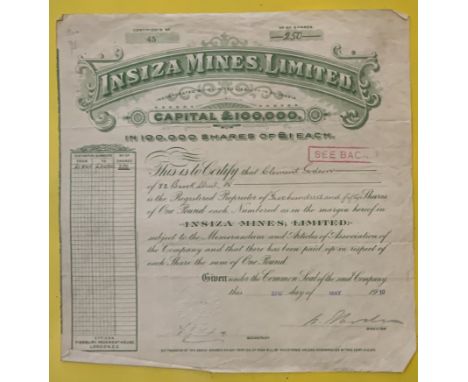 CERTIFICATE Nº
45
Nº OF SHARES
250
INSIZA MINES, LIMITED.
CAPITAL £100,000.
IN 100,000 SHARES OF £1 EACH.
SEE BACK
DISTINCTIVE NUMBERS
Nº OF SHARES
FROM TO
This is to Certify that Clement Godson
of 22 Brook Street W
is the Registered Proprietor of Two hundred and fifty Shares
of One Pound each, Numbered as in the margin hereof in
INSIZA MINES, LIMITED,
subject to the Memorandum and Articles of Association of
the Company and that there has been paid up in respect of
each Share the sum of One Pound
Given under the Common Seal of the said Company
this day of MAY 1910
DIRECTOR
SECRETARY
OFFICES
LONDON, E.C.